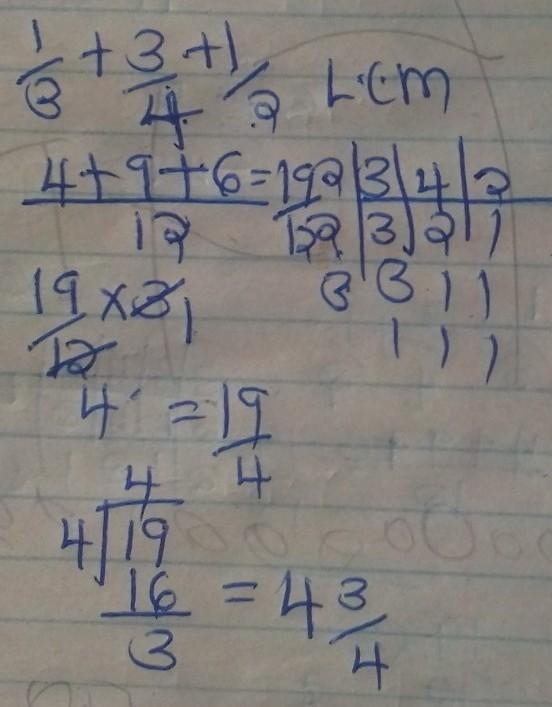 1/3 + 3/4 + 1/2 L.C.M
4+9+6/12 = 19/12
2 | 3 | 4 | 2
2 | 3 | 2 | 1
3 | 3 1 1
1 1 1
19/12 × 3 1
4 = 19/4
4
4√19
16
3
= 4 3/4